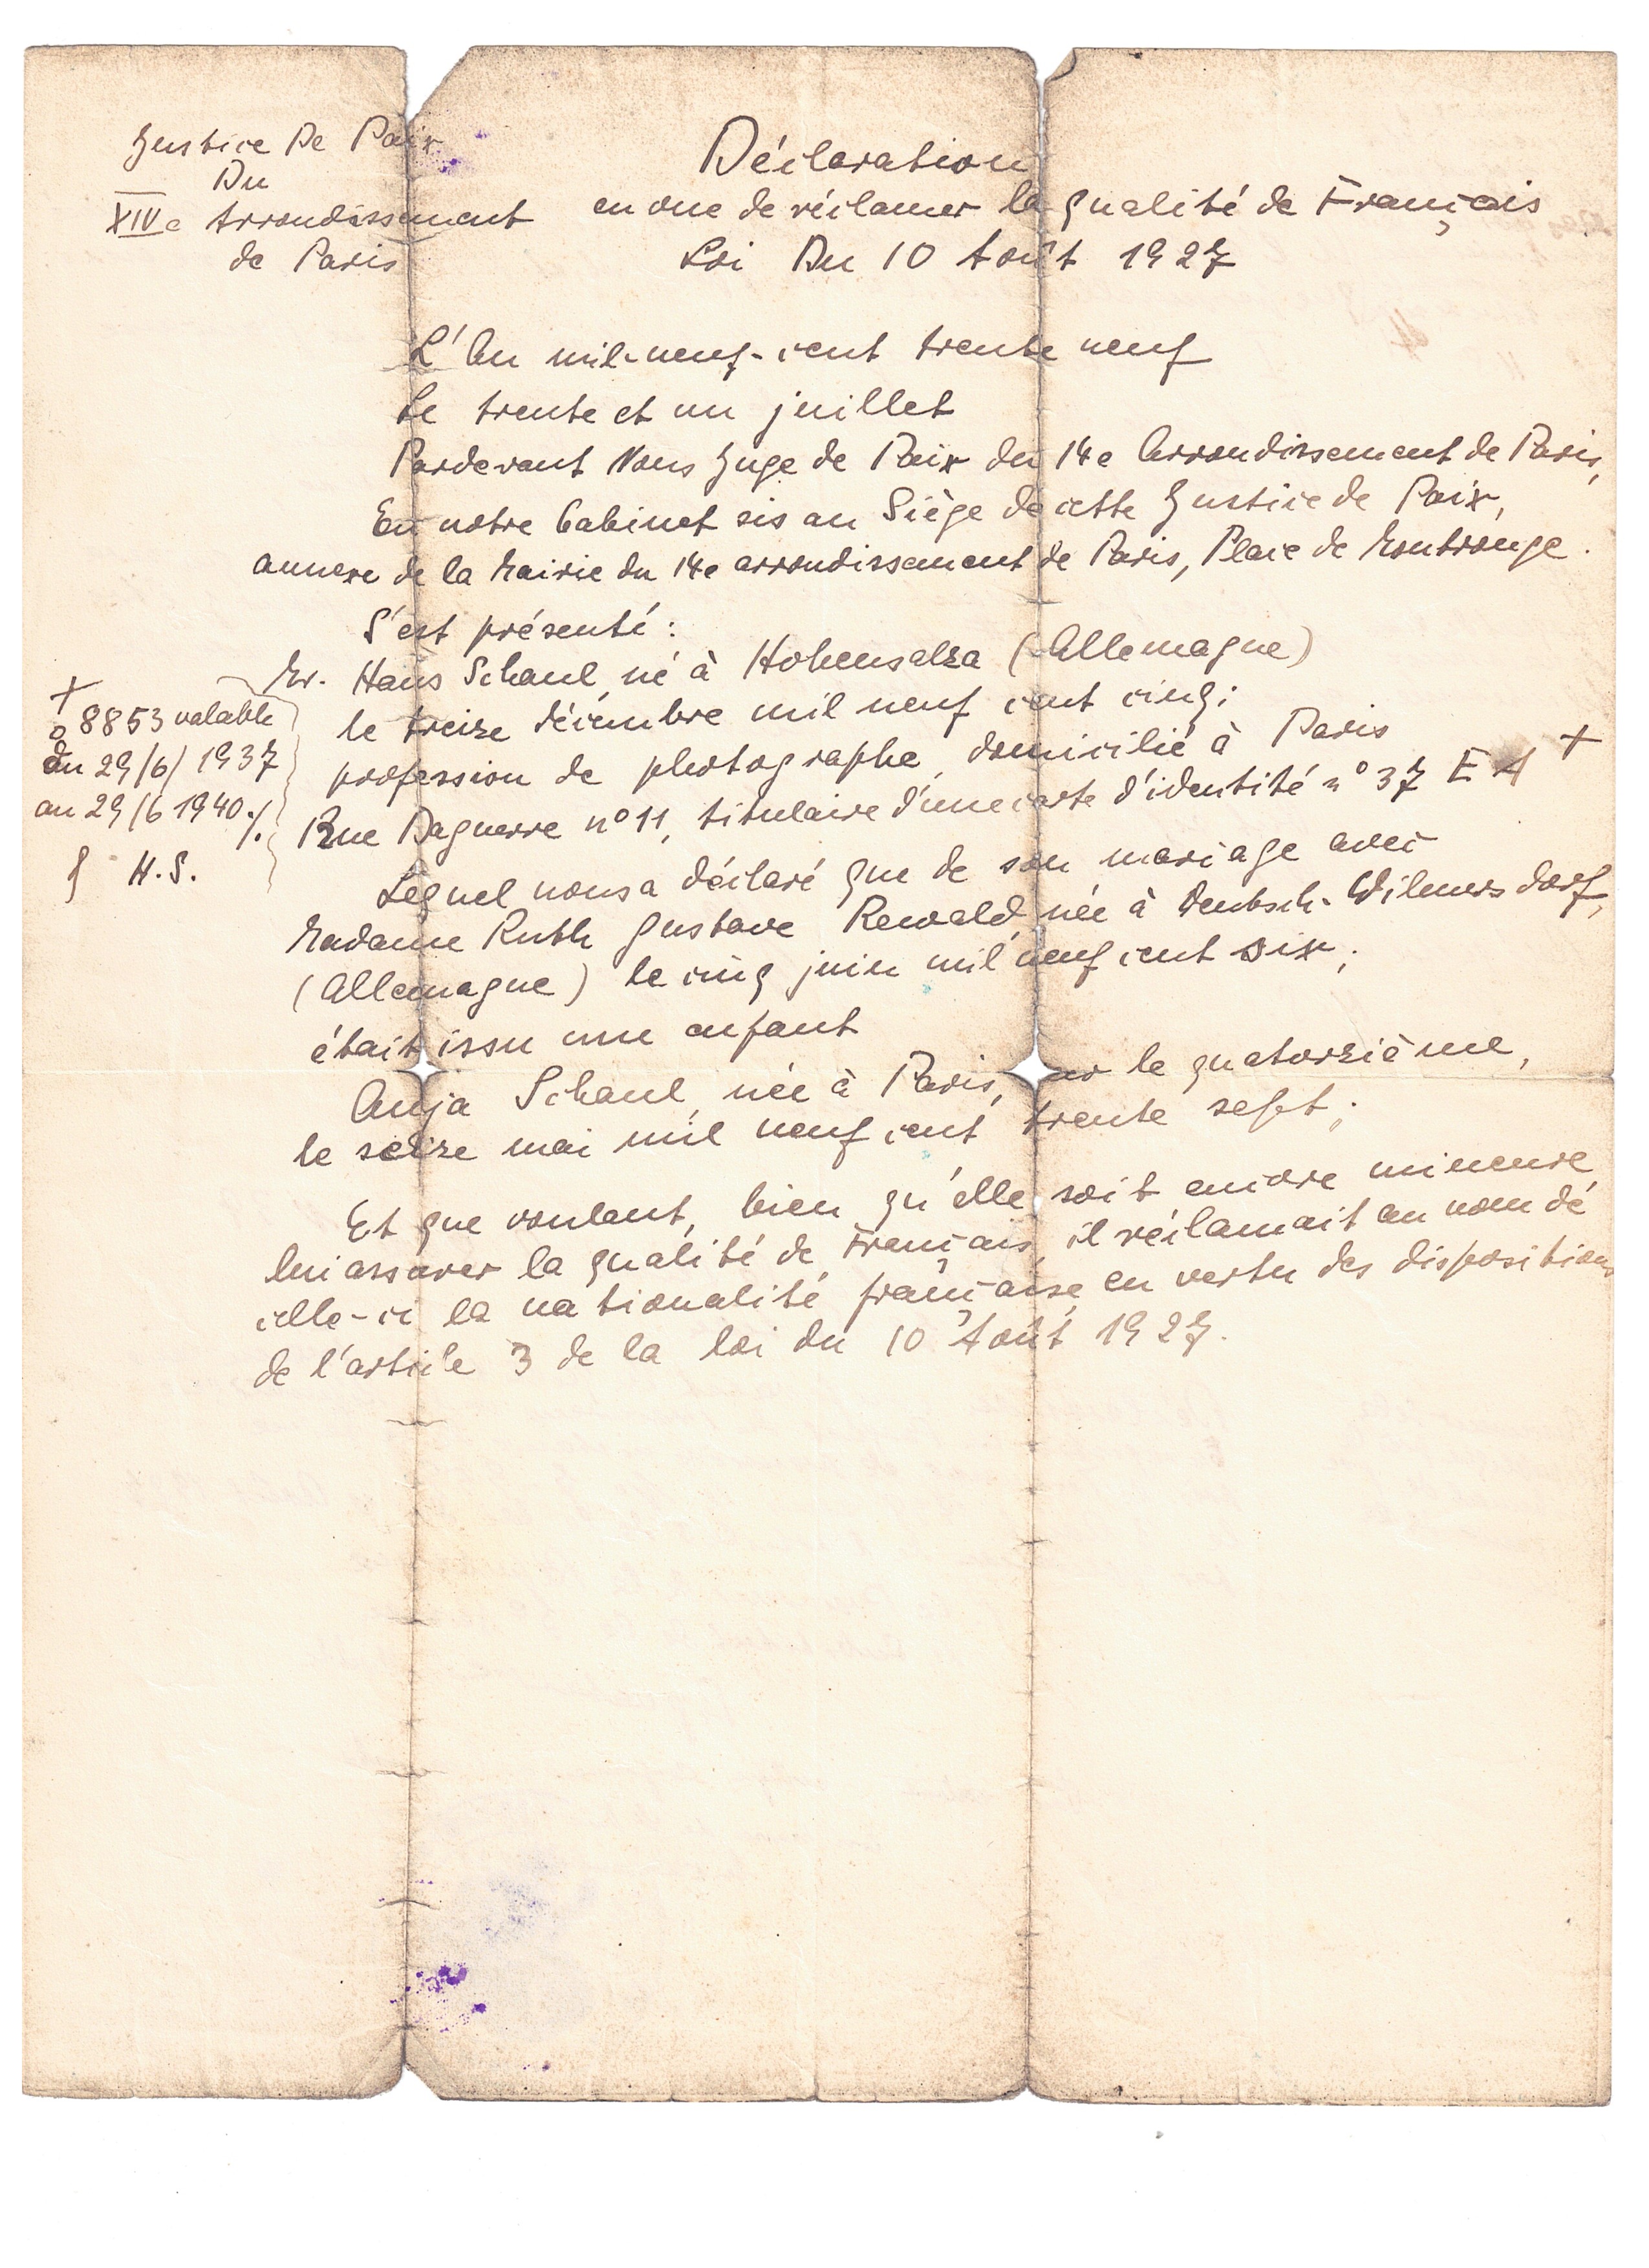 Justice De Paix
Du
XIVe Arrondissement
de Paris
Déclaration
en vue de réclamer la qualité de Français
Loi Du 10 Août 1927
L'An mil-neuf-cent trente neuf
Le trente et un juillet
Pardevant Nous Juge de Paix du 14e Arrondissement de Paris,
En notre Cabinet sis au Siège de cette Justice de Paix,
annexe de la Mairie du 14e arrondissement de Paris, Place de Montrouge.
S'est présenté :
Mr. Hans Schaul, né à Hohensalza (Allemagne)
le treize décembre mil neuf cent cinq ;
profession de photographe, domicilié à Paris
Rue Daguerre n° 11, titulaire d'une carte d'identité n° 37 E A +
+
8853 valable
du 29/6/1937
au 29/6 1940 ./.
H.S.
Lequel nous a déclaré que de son mariage avec
Madame Ruth Gustave Rewald, née à Deutsch-Wilmersdorf,
(Allemagne) le cinq juin mil neuf cent six ;
était issu une enfant
Anja Schaul, née à Paris, sur le quatorzième,
le seize mai mil neuf cent trente sept ;
Et que voulant, bien qu'elle soit encore mineure
lui assurer la qualité de Français, il réclamait au nom de
celle-ci la nationalité française en vertu des dispositions
de l'article 3 de la loi du 10 Août 1927.